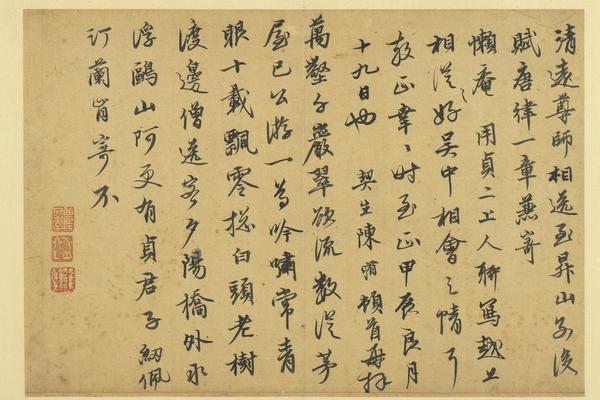 清遠尊師相送至昇山後
賦唐律一章兼寄
懶庵 用貞二上人聊篤越上
相從好吳中相會之情
教正幸〻時至正甲辰良月
十九日也 契生陳 頓首再拜
萬壑千巖翠欲流數從茅
屋已公游一尊吟嘯常青
眼十載飄零總白頭老樹
渡邊僧送客夕陽橋外水
浮鷗山阿更有貞君子紉佩
汀蘭肯寄不